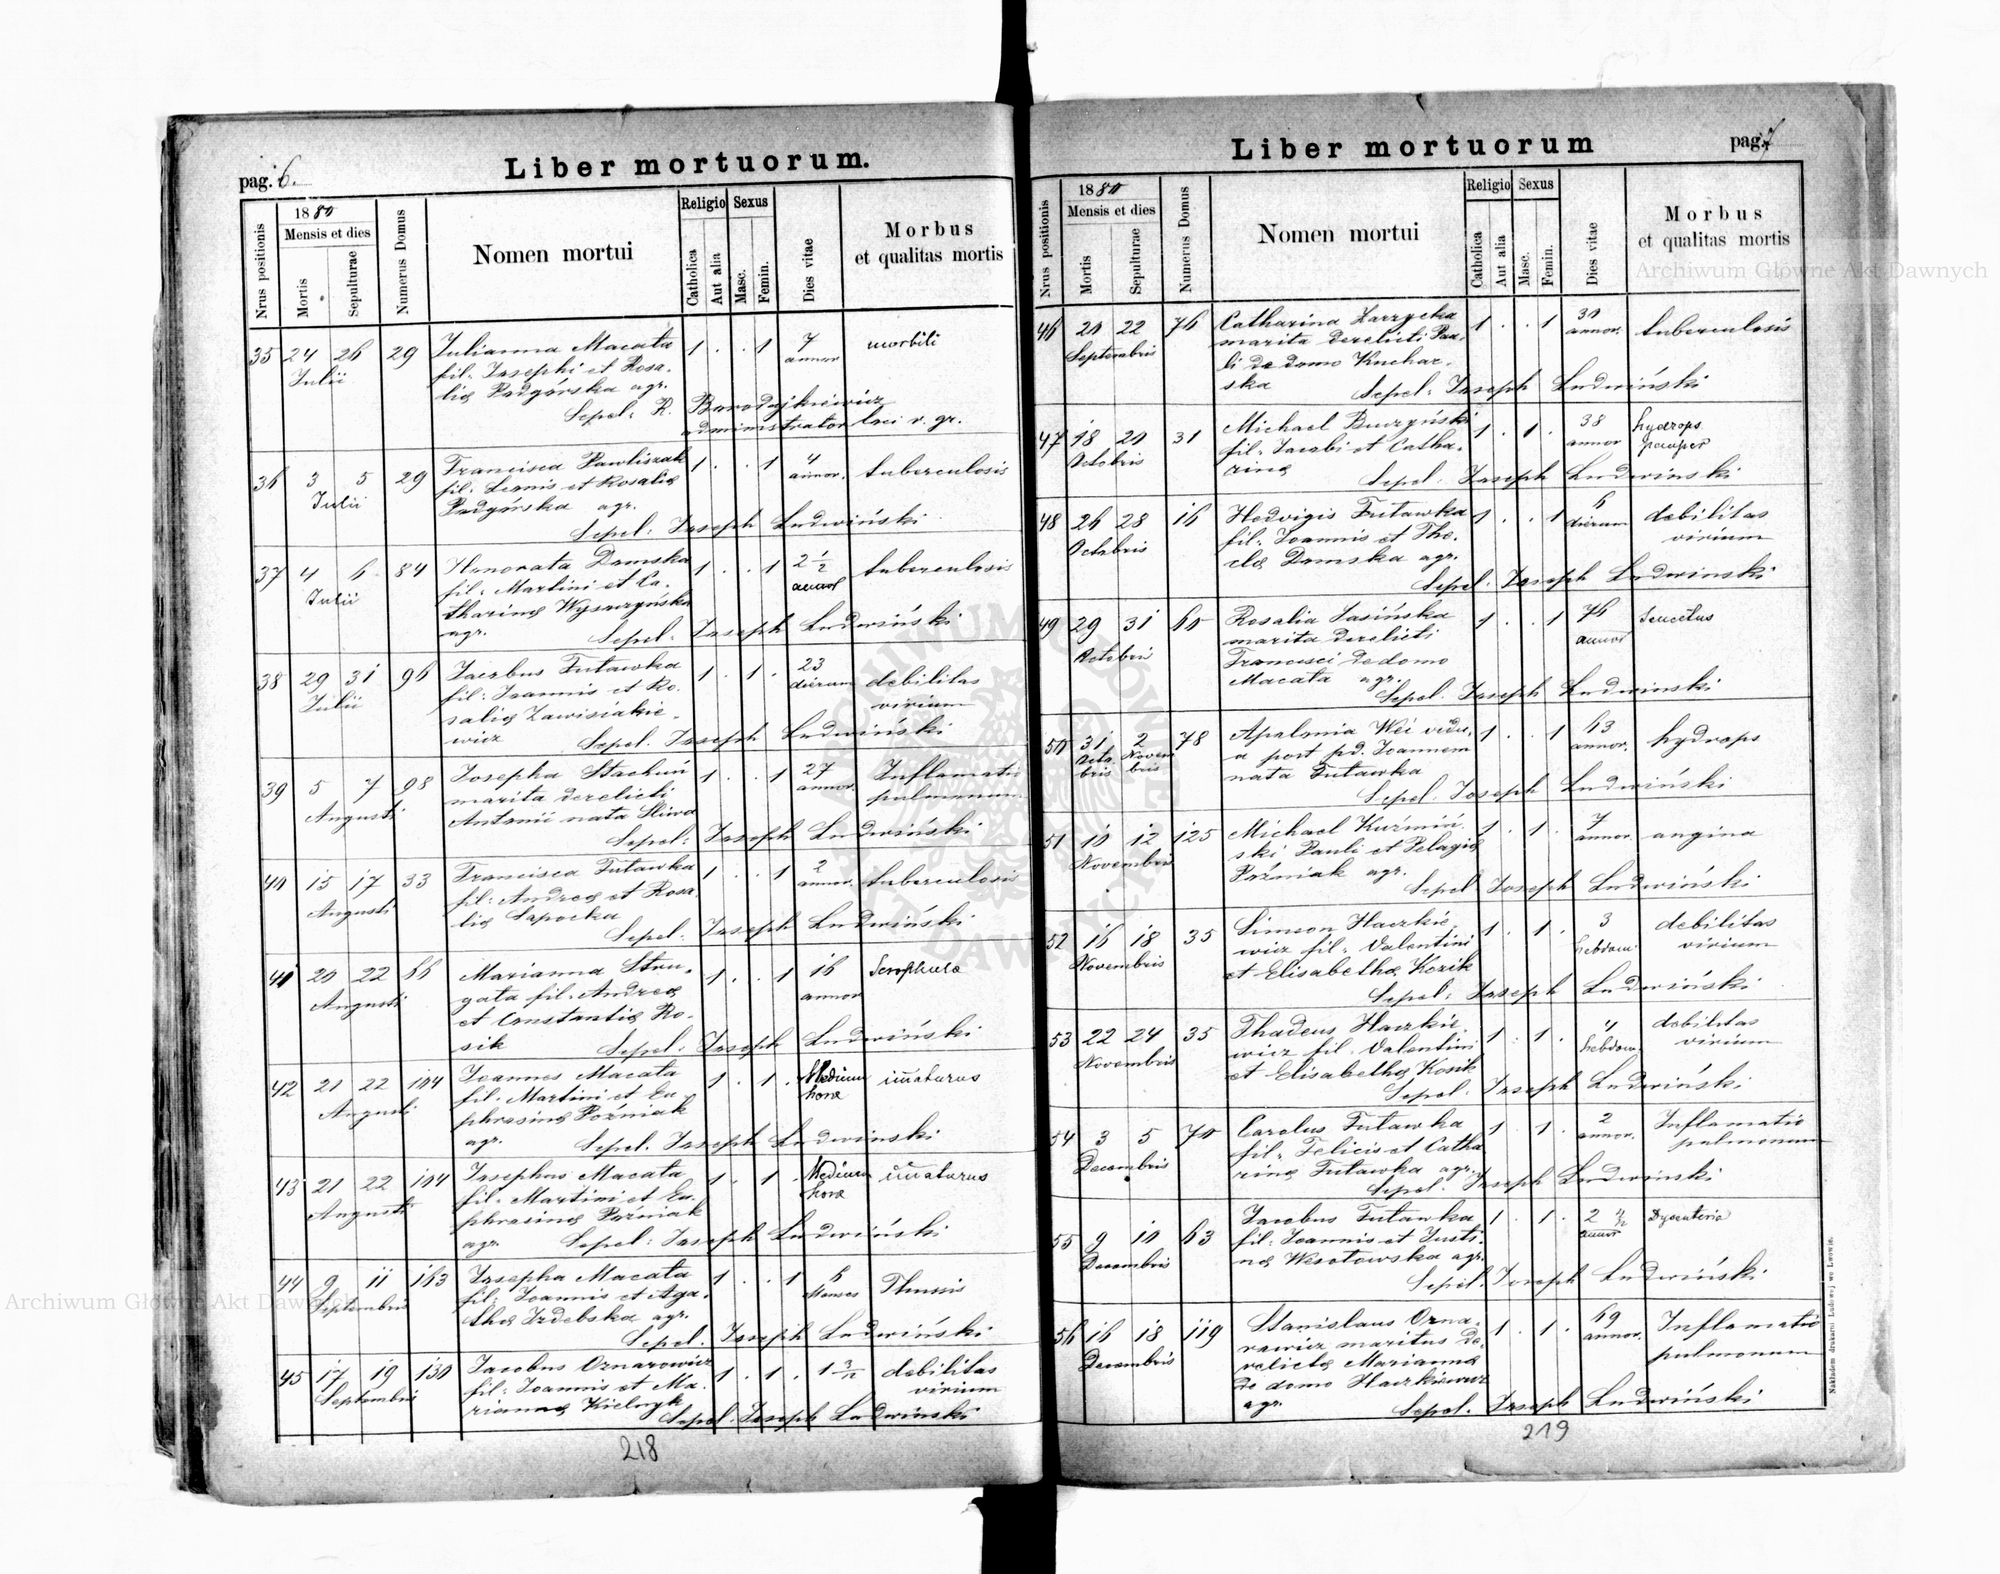 pag. 6.
Liber mortuorum.
Nrus positionis
1880
Mensis et dies
Mortis
Sepulturae
Numerus Domus
Nomen mortui
Religio
Catholica
Aut alia
Sexus
Masc.
Femin.
Dies vitae
Morbus
et qualitas mortis
35 24 26 29 Julianna Macata 1 . . 1 7 morbili
Julii fil. Josephi et Rosa- annor
liae Podgórska agr.
Sepel. R. Borodajkiewicz
administrator loci r. gr.
36 3 5 29 Francisca Pawliszak 1 . . 1 4 tuberculosis
Julii fil. Leonis et Rosaliae annor.
Podgórska agr.
Sepel: Joseph Ludwiński
37 4 6 84 Honorata Domska 1 . . 1 2 1/2 tuberculosis
Julii fil. Martini et Ca- annor
tharinae Wyszczyńska
agr. Sepel: Joseph Ludwiński
38 29 31 96 Jacobus Futawka 1 . 1 . 23 debilitas
Julii fil: Joannis et Ro- dierum virium
saliae Zawisiakie-
wicz Sepel. Joseph Ludwiński
39 5 7 98 Josepha Stachuń 1 . . 1 27 Inflamatio
Augusti marita derelicti annor. pulmonum
Antonii nata Sliwa
Sepel: Joseph Ludwiński
40 15 17 33 Francisca Futawka 1 . . 1 2 tuberculosis
Augusti fil: Andreae et Rosa annor.
liae Sapocka
Sepel: Joseph Ludwiński
41 20 22 66 Marianna Stru- 1 . . 1 16 Scrophulae
Augusti gata fil. Andreae annor
et Constantiae Ko-
sik Sepel. Joseph Ludwiński
42 21 22 104 Joannes Macata 1 . 1 . Medium imaturus
Augusti fil. Martini et Eu- horae
phrasinae Poźniak
agr. Sepel. Joseph Ludwinski
43 21 22 104 Josephus Macata 1 . 1 . Medium imaturus
Augusti fil. Martini et Eu- horae
phrasinae Poźniak
agr. Sepel: Joseph Ludwiński
44 9 11 163 Josepha Macata 1 . . 1 6 Thussis
Septembris fil: Joannis et Aga- Menses
thae Izdebska agr.
Sepel. Joseph Ludwiński
45 17 19 130 Jacobus Oznarowicz 1 . 1 . 1 3/12 debilitas
Septembris fil: Joannis et Ma- virium
riannae Kielnyk
Sepel. Joseph Ludwinski
218
Liber mortuorum
pag. 7
Nrus positionis
1880
Mensis et dies
Mortis
Sepulturae
Numerus Domus
Nomen mortui
Religio
Catholica
Aut alia
Sexus
Masc.
Femin.
Dies vitae
Morbus
et qualitas mortis
46 20 22 76 Catharina Zarzycka 1 . . 1 30 tuberculosis
Septembris marita derelicti Pau- annor.
li de domo Kuchar-
ska Sepel: Joseph Ludwiński
47 18 20 31 Michael Buczyński 1 . 1 . 38 hydrops
Octobris fil. Jacobi et Catha- annor pauper
rinae Sepel. Joseph Ludwinski
48 26 28 16 Hedvigis Futawka 1 . . 1 6 debilitas
Octobris fil. Joannis et The- dierum virium
clae Domska agr.
Sepel. Joseph Ludwinski
49 29 31 60 Rosalia Jasińska 1 . . 1 76 Senectus
Octobris marita derelicti annor
Francisci de domo
Macata agr.
Sepel. Joseph Ludwinski
50 31 2 78 Apalonia Wei vidu- 1 . . 1 63 hydrops
Octo- Novem a post pd. Joannem annor.
bris bris nata Futawka
Sepel. Joseph Ludwiński
51 10 12 125 Michael Kuźmiń- 1 . 1 . 7 angina
Novembris ski Pauli et Pelagiae annor.
Poźniak agr.
Sepel Joseph Ludwiński
52 16 18 35 Simeon Haczkie- 1 . 1 . 3 debilitas
Novembris wicz fil. Valentini hebdom. virium
et Elisabethae Kozik
Sepel: Joseph Ludwiński
53 22 24 35 Thadeus Haczkie- 1 . 1 . 4 debilitas
Novembris wicz fil. Valentini hebdom. virium
et Elisabethae Kosik
Sepel. Joseph Ludwiński
54 3 5 70 Carolus Futawka 1 . 1 . 2 Inflamatio
Decembris fil. Felicis et Catha annor. pulmonum
rinae Futawka agr.
Sepel. Joseph Ludwinski
55 9 10 63 Jacobus Futawka 1 . 1 . 2 4/12 Dysenteria
Decembris fil. Joannis et Justi- annor
nae Wesotowska agr.
Sepel. Joseph Ludwiński
56 16 18 119 Stanislaus Ozna- 1 . 1 . 69 Inflamatio
Decembris rowicz maritus de- annor. pulmonum
relictae Mariannae
de domo Haczkiewicz
agr. Sepel. Joseph Ludwiński
219
Nakładem drukarni Ludowej we Lwowie.
Archiwum Główne Akt Dawnych
Archiwum Główne Akt Dawnych
ARCHIWUM GŁÓWNE AKT DAWNYCH